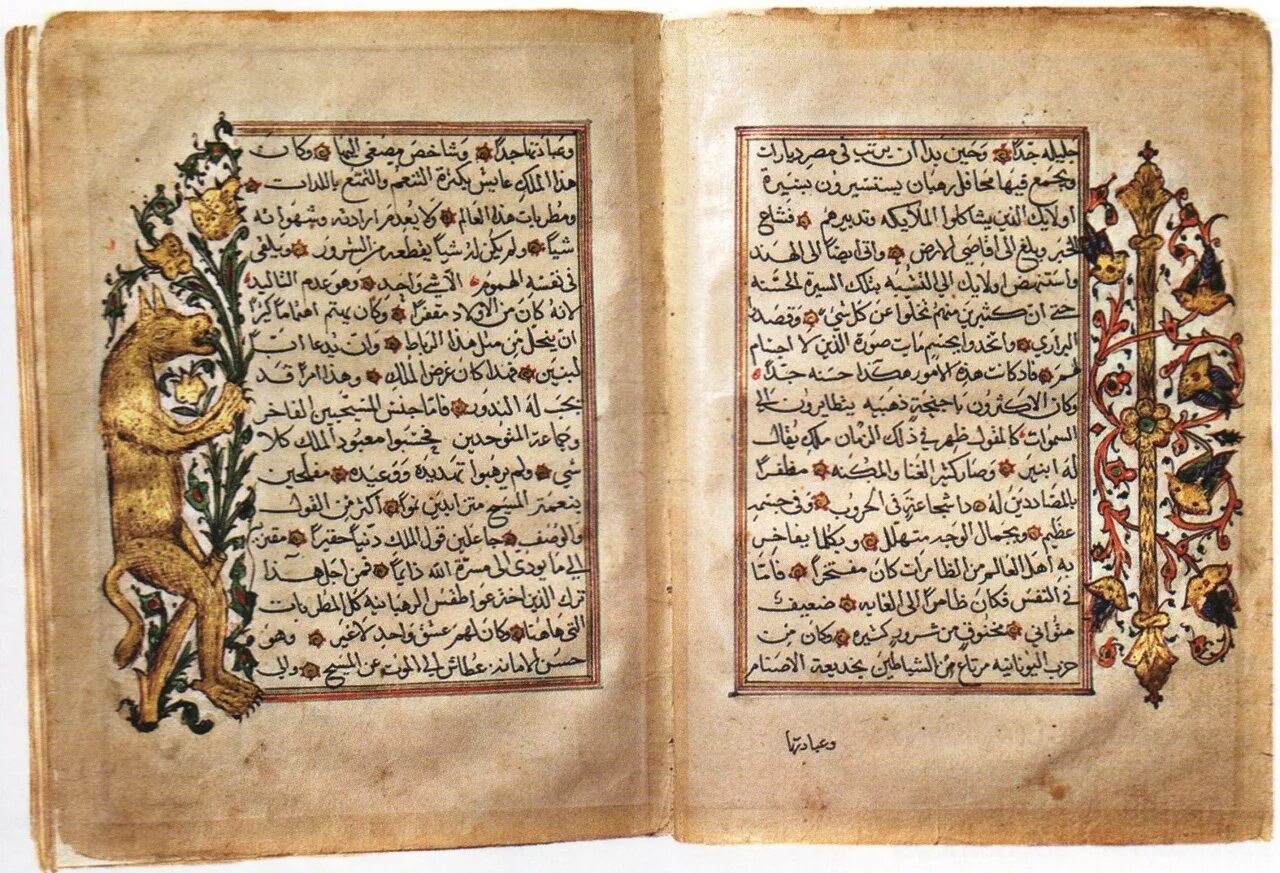 جليله جداً وحين بدا ان يرتب في مصر ديارات
ويجمع فيها محافل رهبان يستسيرون بسيرة
اولايك الذين يشاكلوا الملايكه وتدبيرهم فشاع
الخبر وبلغ الى اقاصى الارض وافى ايضاً الى الهند
واستنهض اولايك الي التشبه بتلك السيرة الحسنه
حتى ان كثيرين منهم تخلوا عن كل شي وقصدوا
البراري واتخدوا بجسم مايت صورة الذين لا اجسام
لهم فاد كانت هذه الامور هكذا حسنه جداً
وكان الاكثرون باجنحة ذهبيه يتطايرون الي
السموات كالمقول ظهر في ذلك الزمان ملك يقال
له ابنير وصار كثير الغنا والمكنه مظفراً
بالمضاددين له دا شجاعة في الحروب وفي جسم
عظيم وبجمال الوجه متهلل وبكلما يفاخر
به اهل العالم من الظاهرات كان مفتخراً فامّا
في النفس فكان ظامراً الى الغايه ضعيف
متواني مخنوق من شرور كثيره وكان من
حزب اليونانيه مرتاع من الشياطين بخديعة الاصنام
وعبادتها
وعبادتها جداً وشاخص مصغى اليها وكان
هدا الملك عايش بكثرة التنعم والتمتع باللدات
ومطربات هدا العالم ولا يعدم ارادته وشهواته
شياً ولم يكن له شياً يقطعه من السرور ويلقى
في نفسه الهموم الا شي واحد وهو عدم التاليد
لانه كان من الاولاد مفقراً وكان يهتم اهتماماً كثيراً
ان ينحل من مثل هذا الرباط وان يدعا اب
لبنين فهدا كان غرض الملك وهدا امراً قد
يجب له الندور فاما جنس المسيحيين الفاخر
وجماعة المتوحدين فحسبوا معبود الملك كلا
شي ولم يرهبوا تهديده ووعيده مفلحين
بنعمة المسيح متزايدين نمواً اكثر من القول
والوصف جاعلين قول الملك دنياً حقيراً مقبلين
الي ما يودي الى مسرة الله دايماً فمن اجل هذا
ترك الذين اخترعوا طقس الرهبانيه كل المطربات
التي هاهنا وكان لهم عشق واحد لا غير وهو
حسن الامانه عطاش الى الموت عن المسيح والى